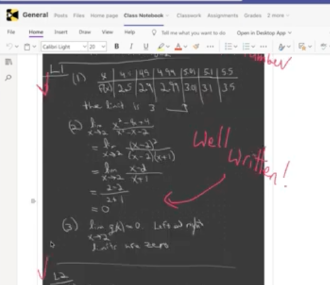 General Posts Files Home page Class Notebook Classwork Assignments Grades 2 more
File Home Insert Draw View Help Tell me what you want to do Open in Desktop App
Calibri Light 20 B
L1
(1) x 4.5 4.9 4.99 5.01 5.1 5.5
f(x) 2.5 2.9 2.99 3.01 3.1 3.5
the limit is 3
(2) lim x→2 x²-4x+4 / x²-x-2
= lim x→2 (x-2)² / (x-2)(x+1)
= lim x→2 x-2 / x+1
= 2-2 / 2+1
= 0
Well
Written!
(3) lim x→2 g(x) = 0. Left and right
limits are zero
L2